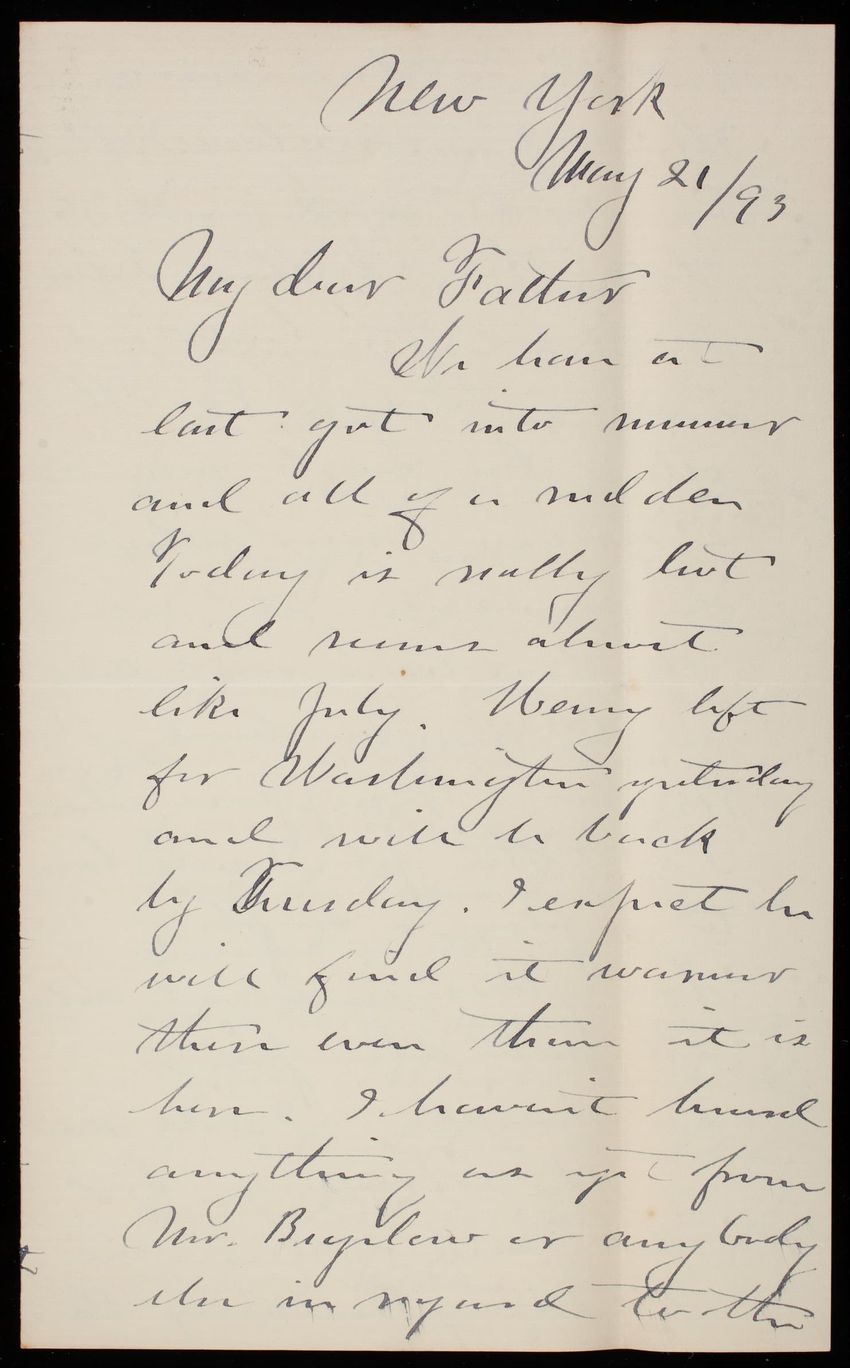 New York
May 21/93
My dear Father
We have at
last got into summer
and all of a sudden
Today is really hot
and seems almost
like July. Henry left
for Washington yesterday
and will be back
by Tuesday. I expect he
will find it warmer
there even than it is
here. I haven't heard
anything as yet from
Mr. Bigelow or anybody
else in regard to the